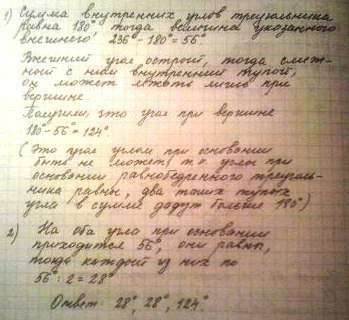 1) Сумма внутренних углов треугольника
равна 180°, тогда величина указанного
внешнего 236° - 180° = 56°
Внешний угол острый, тогда смеж-
ный с ним внутренний тупой,
он может лежать лишь при
вершине
Получили, это угол при вершине
180 - 56° = 124°.
(Это угол углом при основании
быть не может, т.к. углы при
основании равнобедренного треуголь-
ника равны, два таких тупых
угла в сумме дадут больше 180°)
2) На оба угла при основании
приходится 56°, они равны,
тогда каждый из них по
56° : 2 = 28°
Ответ: 28°, 28°, 124°